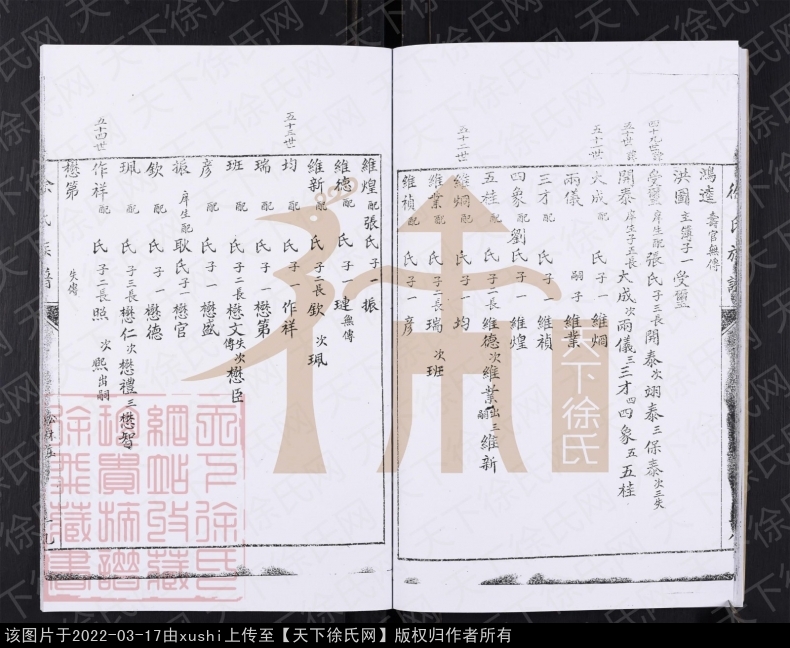 徐氏族譜
鴻逵 壽官無傳
洪圖 主簿子一 受璽
四十九世
受璽 庠生配張氏子三長開泰次翊泰三保泰次三失
五十世
開泰 庠生子五長大成次兩儀三三才四四象五五桂
五十一世
大成 配 氏子一 維烱
兩儀 嗣子 維業
三才 配 氏子一 維禎
四象 配劉氏子一 維煌
五桂 配 氏子三長維德次維業出嗣三維新
五十二世
維烱 配 氏子一 均
維業 配 氏子二長瑞 次班
維禎 配 氏子一 彥
維煌 配張氏子一 振
維德 配 氏子一 璉無傳
維新 配 氏子二長欽 次珮
五十三世
均 配 氏子一 作祥
瑞 配 氏子一 懋第
班 配 氏子二長懋文失傳次懋臣
彥 配 氏子一 懋盛
振 庠生配耿氏子一 懋官
欽 配 氏子一 懋德
珮 配 氏子三長懋仁次懋禮三懋智
五十四世
作祥 配 氏子二長照 次熙出嗣
懋第 失傳
徐氏族譜
天下徐氏
天下徐氏网
该图片于2022-03-17由xushi上传至【天下徐氏网】版权归作者所有